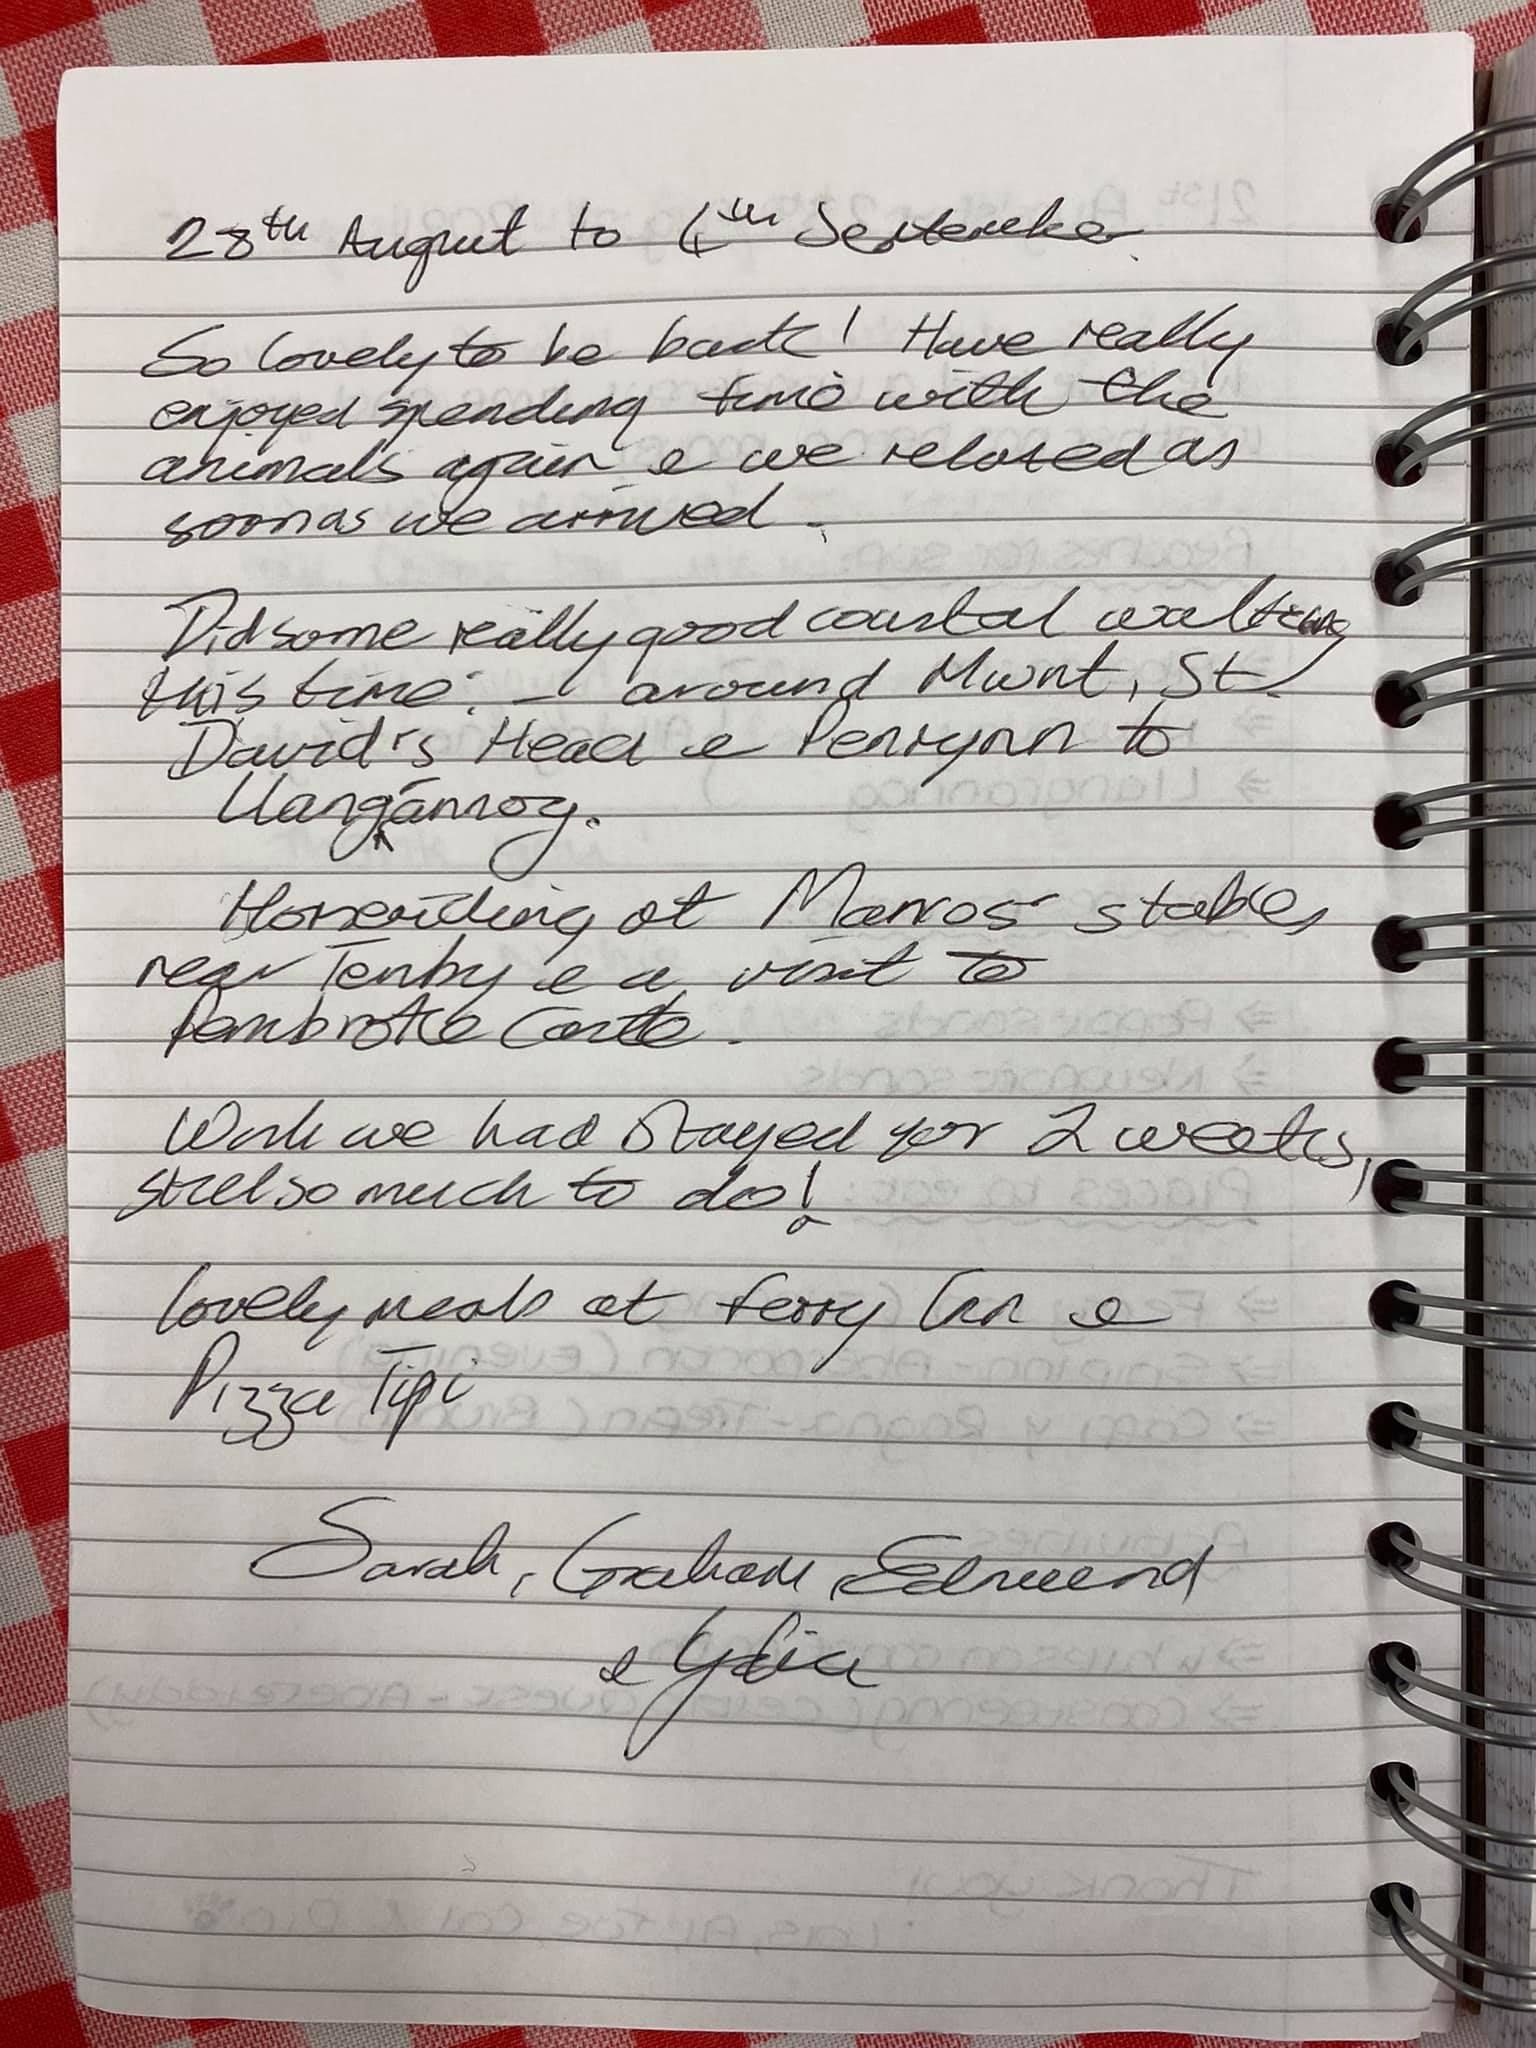 28th August to 4th September
So lovely to be back! Have really
enjoyed spending time with the
animals again & we relaxed as
soon as we arrived.
Did some really good coastal walking
this time: - around Mwnt, St
David's Head & Penrynn to
Llangánnog.
Horseriding at Marros stables
near Tenby & a visit to
Pembroke Castle.
Wish we had stayed for 2 weeks,
still so much to do!
Lovely meals at Ferry Inn &
Pizza Tipi
Sarah, Graham, Edmund
&